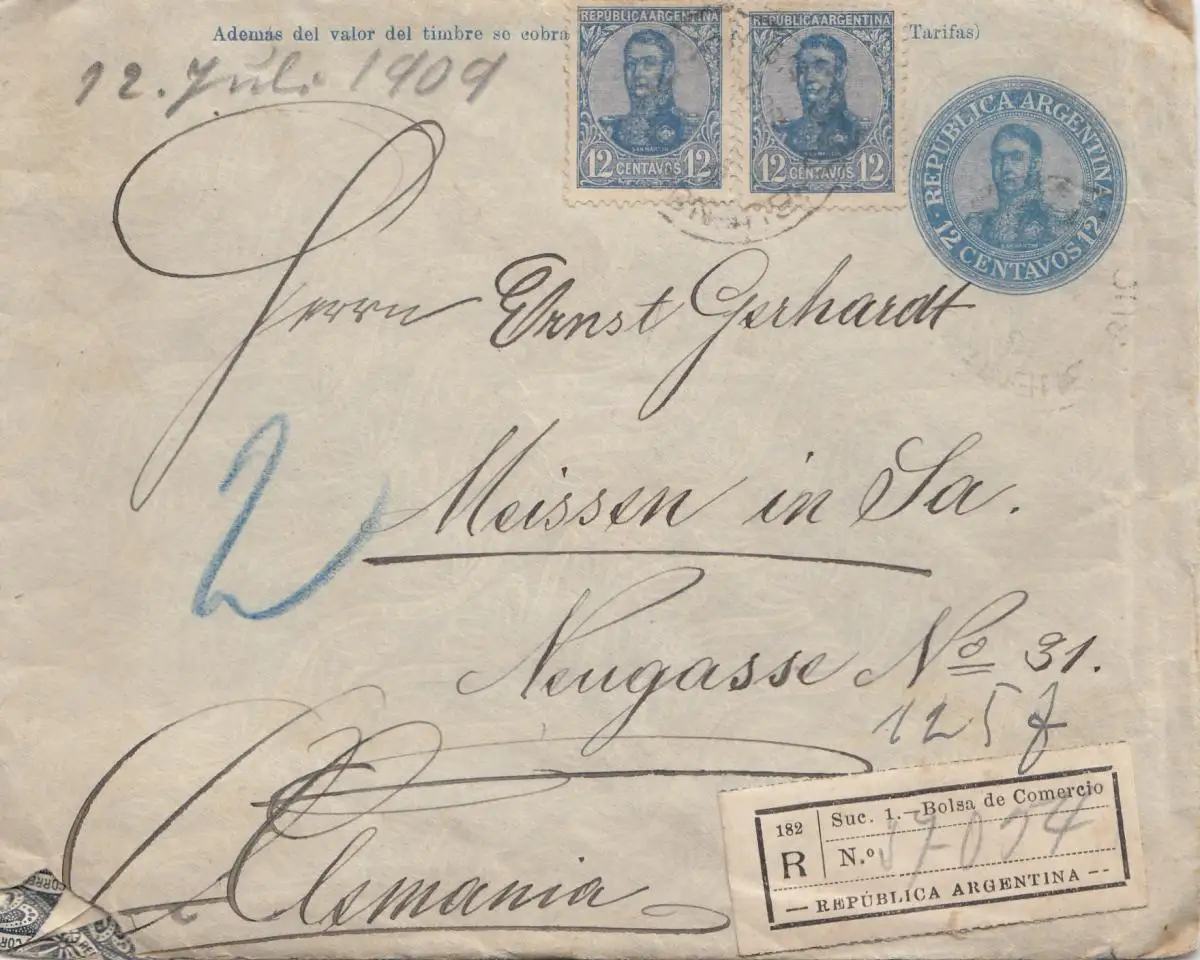 Además del valor del timbre se cobra Tarifas)
12. Juli 1909
REPÚBLICA ARGENTINA
SAN MARTIN
12 CENTAVOS 12
REPÚBLICA ARGENTINA
12 CENTAVOS 12
REPÚBLICA ARGENTINA
SAN MARTIN
12 CENTAVOS 12
Herrn Ernst Gerhardt
2
Meissen in Sa.
Neugasse No 31.
125
Alemania
182
R
Suc. 1.—Bolsa de Comercio
N.o
— REPÚBLICA ARGENTINA --